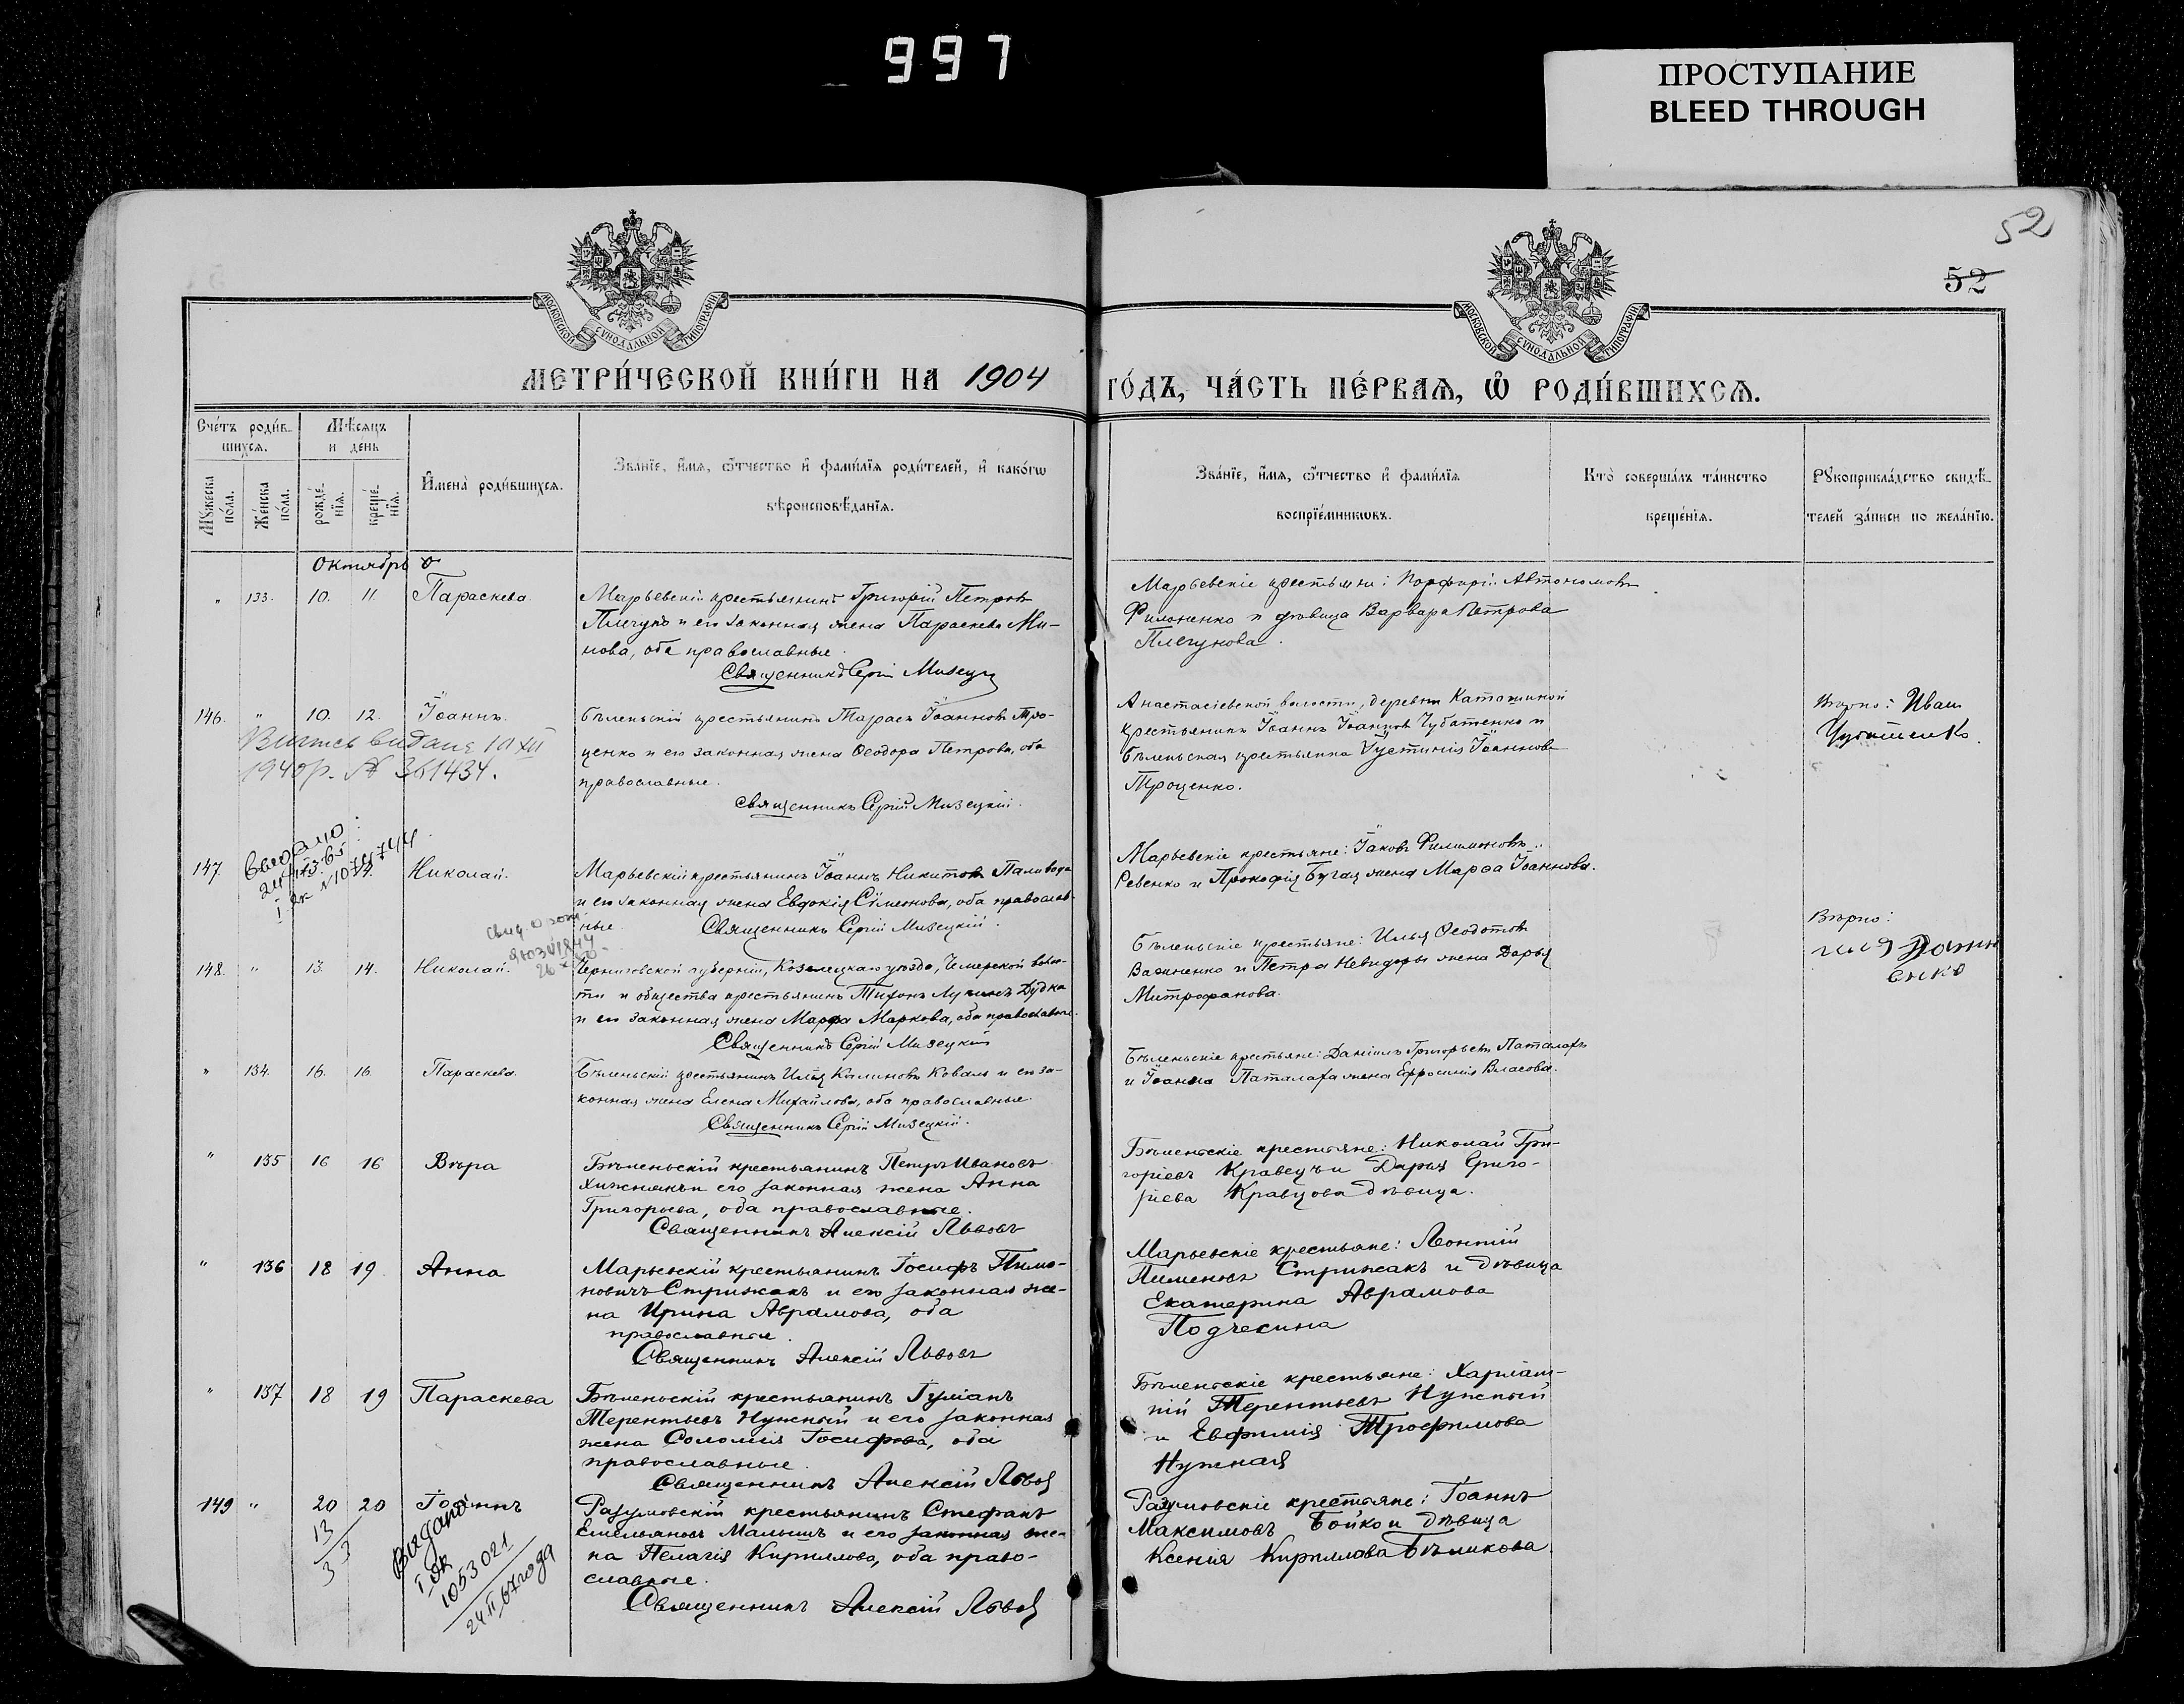 997
ПРОСТУПАНИЕ
BLEED THROUGH
52
52
МОСКОВСКОЙ СѴНОДАЛЬНОЙ ТИПОГРАФІИ
МОСКОВСКОЙ СѴНОДАЛЬНОЙ ТИПОГРАФІИ
МЕТРИ́ЧЕСКОЙ КНИ́ГИ НА 1904
ГО́ДЪ, ЧА́СТЬ ПЕ́РВАѦ, Ѡ҃ РОДИ́ВШИХСѦ.
Сче́тъ роди́в-
шихсѧ.
Мѣ́сяцъ
и де́нь
Мꙋ́жеска по́ла.
Же́нска по́ла.
рожде́-
нїѧ.
креще́-
нїѧ.
И҆мена̀ роди́вшихсѧ.
Зва́нїе, и҆́мѧ, ѻ҆́тчество и҆ фами́лїѧ роди́телей, и҆ како́гѡ
вѣроисповѣ́данїѧ.
Зва́нїе, и҆́мѧ, ѻ҆́тчество и҆ фами́лїѧ
воспрїе́мникѡвъ.
Кто̀ соверша́лъ та́инство
креще́нїѧ.
Рꙋкоприкла́дство свидѣ́-
телей за́писи по жела́нїю.
Октябрь
" 133. 10. 11. Параскева
Марьевскій крестьянинъ Григорій Петровъ
Плечунъ и его законная жена Параскева Ми-
нова, оба православные.
Священникъ Сергій Мизецкій
Марьевскіе крестьяне: Порфирій Автономовъ
Филоненко и дѣвица Варвара Петрова
Плечунова.
146. " 10. 12. Іоаннъ.
Витяг видане 10 XII
1940 р. № 361434.
Бѣленьскій крестьянинъ Тарасъ Іоанновъ Тро-
ценко и его законная жена Ѳеодора Петрова, оба
православные.
Священникъ Сергій Мизецкій.
Анастасіевской волости, деревни Катожиной
крестьянинъ Іоаннъ Іоанновъ Чубатенко и
Бѣленьская крестьянка Іустинія Іоаннова
Троценко.
Вѣрно: Иван
Чубатенко.
147. 14. Николай.
Выдано:
Марьевскій крестьянинъ Іоаннъ Никитовъ Паливода
и его законная жена Евдокія Сѵмеонова, оба православ-
ные. Священникъ Сергій Мизецкій.
Марьевскіе крестьяне: Іаковъ Филимоновъ
Ревенко и Прокофія Бугая жена Марѳа Іоаннова.
148. " 13. 14. Николай.
Черниговской губерніи, Козелецкаго уѣзда, Чемерской волос-
ти и общества крестьянинъ Тихонъ Лукинъ Дудка
и его законная жена Марфа Маркова, оба православные.
Священникъ Сергій Мизецкій
Бѣленьскіе крестьяне: Илья Ѳеодотовъ
Вакиненко и Петра Невидоры жена Дарья
Митрофанова.
Вѣрно:
" 134. 16. 16. Параскева.
Бѣленьскій крестьянинъ Илья Калиновъ Коваль и его за-
конная жена Елена Михайлова, оба православные.
Священникъ Сергій Мизецкій.
Бѣленьскіе крестьяне: Даніилъ Григорьевъ Паталаха
и Іоанна Паталаха жена Ефросинія Власова.
" 135 16 16 Вѣра
Бѣленьскій крестьянинъ Петръ Ивановъ
Хижнякъ и его законная жена Анна
Григорьева, оба православные.
Священникъ Алексій Львовъ
Бѣленьскіе крестьяне: Николай Гри-
горіевъ Кравецъ и Дарья Григо-
ріева Кравцова дѣвица.
" 136 18 19 Анна
Марьевскій крестьянинъ Іосифъ Пимо-
новичъ Стрижакъ и его законная же-
на Ирина Аврамова, оба
православные.
Священникъ Алексій Львовъ
Марьевскіе крестьяне: Леонтій
Пименовъ Стрижакъ и дѣвица
Екатерина Аврамова
Подчесина
" 137 18 19 Параскева
Бѣленьскій крестьянинъ Іуліанъ
Терентьевъ Нужный и его законная
жена Соломія Іосифова, оба
православные.
Священникъ Алексій Львов
Бѣленьскіе крестьяне: Харлам-
пій Терентьевъ Нужный
и Евфимія Трофимова
Нужная
149 " 20 20 Іоаннъ
13
Видано
I ЯК
1053021
24.II.67 года
Разумовскій крестьянинъ Стефанъ
Емельяновъ Малышъ и его законная же-
на Пелагія Кириллова, оба право-
славные.
Священникъ Алексій Львов
Разумовскіе крестьяне: Іоаннъ
Максимовъ Бойко и дѣвица
Ксенія Кириллова Бѣликова